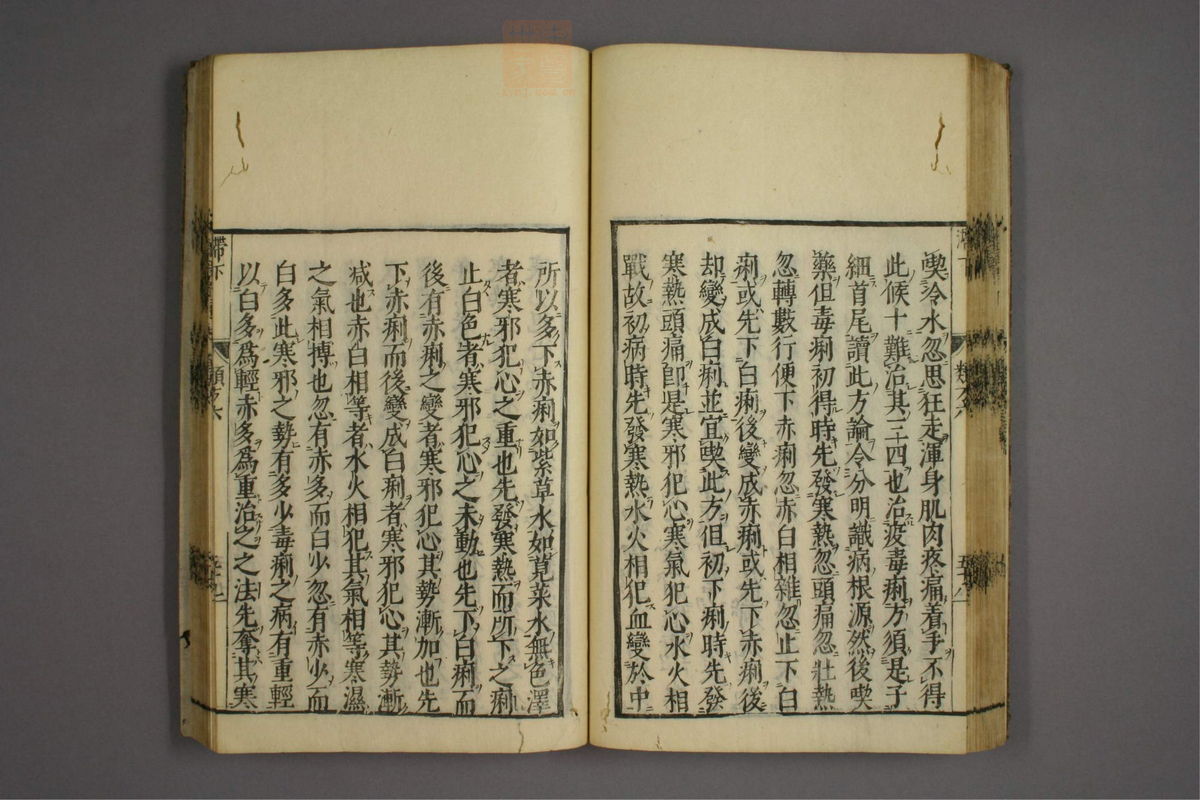 喫冷水忽思狂走渾身肌肉疼痛着手不得
此候十難治其三四也治疫毒痢方須是子
細首尾讀此方論令分明識病根源然後喫
藥但毒痢初得時先發寒熱忽頭痛忽壯熱
忽轉數行便下赤痢忽赤白相雜忽止下白
痢或先下白痢後變成赤痢或先下赤痢後
却變成白痢並宜喫此方但初下痢時先發
寒熱頭痛卽是寒邪犯心寒氣犯心水火相
戰故初病時先發寒熱水火相犯血變於中
所以多下赤痢如紫草水如莧菜水無色澤
者寒邪犯心之重也先發寒熱而所下之痢
止白色者寒邪犯心之未動也先下白痢而
後有赤痢之變者寒邪犯心其勢漸加也先
下赤痢而後變成白痢者寒邪犯心其勢漸
减也赤白相等者水火相犯其氣相等寒濕
之氣相搏也忽有赤多而白少忽有赤少而
白多此寒邪之勢有多少毒痢之病有重輕
以白多爲輕赤多爲重治之之法先奪其寒
滯下